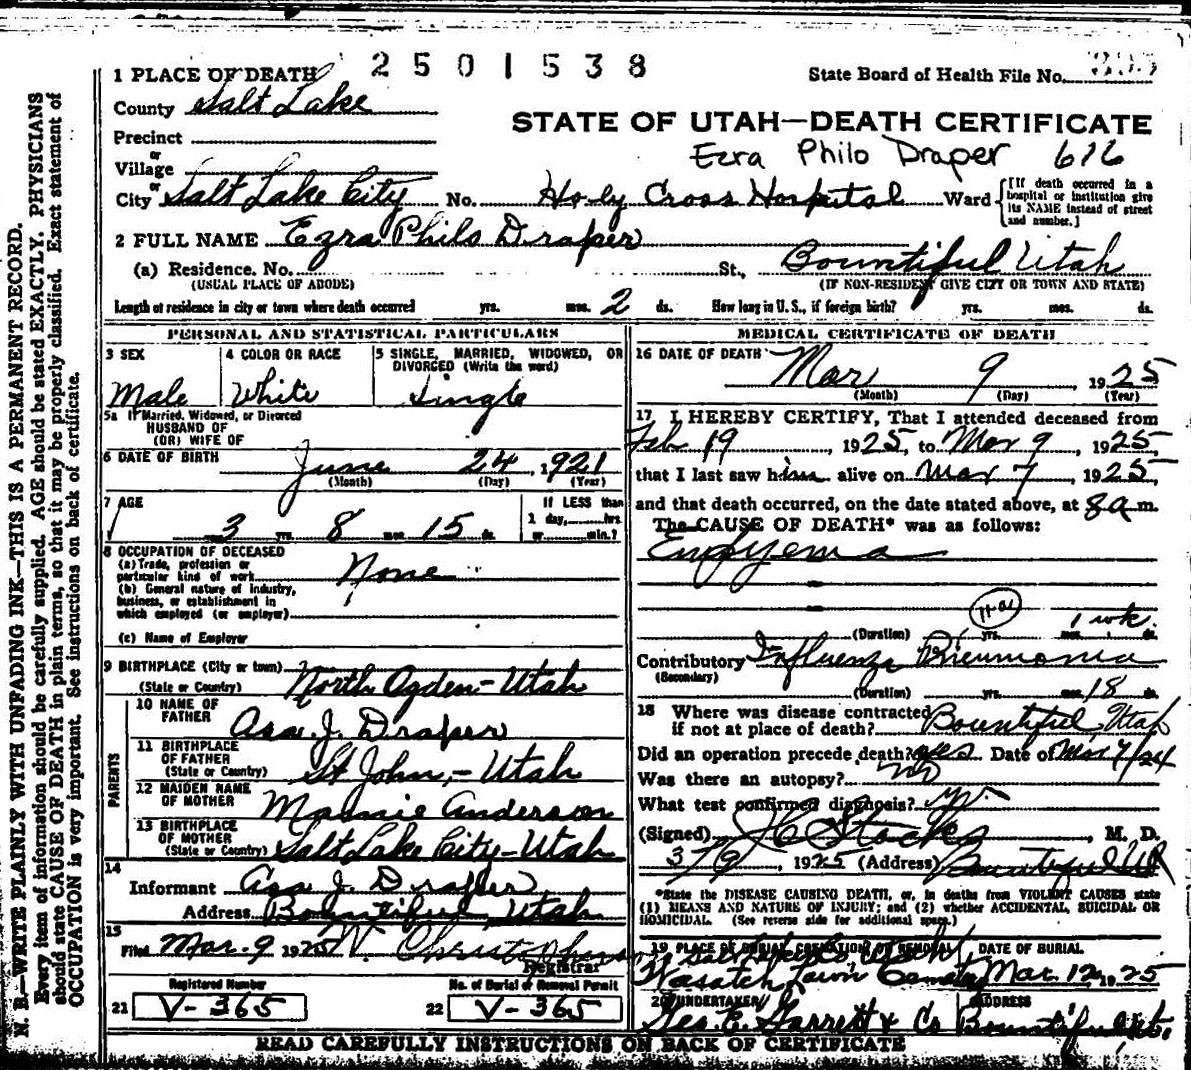 2501538
1 PLACE OF DEATH
State Board of Health File No.
County Salt Lake
STATE OF UTAH—DEATH CERTIFICATE
Precinct
Ezra Philo Draper 616
or
Village
or
City Salt Lake City No. Holy Cross Hospital Ward [If death occurred in a hospital or institution give its NAME instead of street and number.]
2 FULL NAME Ezra Philo Draper
(a) Residence. No. St., Bountiful Utah
(USUAL PLACE OF ABODE) (IF NON-RESIDENT GIVE CITY OR TOWN AND STATE)
Length of residence in city or town where death occurred yrs. mos. 2 ds. How long in U.S., if foreign birth? yrs. mos. ds.
PERSONAL AND STATISTICAL PARTICULARS
3 SEX
Male
4 COLOR OR RACE
White
5 SINGLE, MARRIED, WIDOWED, OR
DIVORCED (Write the word)
Single
5a If Married, Widowed, or Divorced
HUSBAND OF
(OR) WIFE OF
6 DATE OF BIRTH June 24, 1921
(Month) (Day) (Year)
7 AGE
3 yrs. 8 mos. 15 ds.
If LESS than
1 day, hrs
or min.?
8 OCCUPATION OF DECEASED
(a) Trade, profession or
particular kind of work None
(b) General nature of industry,
business, or establishment in
which employed (or employer)
(c) Name of Employer
9 BIRTHPLACE (City or town) North Ogden-Utah
(State or Country)
PARENTS
10 NAME OF
FATHER Asa J. Draper
11 BIRTHPLACE
OF FATHER
(State or Country) St John,- Utah
12 MAIDEN NAME
OF MOTHER Mamie Anderson
13 BIRTHPLACE
OF MOTHER
(State or Country) Salt Lake City-Utah
14
Informant Asa J. Draper
Address Bountiful Utah
15
Filed Mar. 9 1925
Registrar
Registered Number
21 V-365
No. of Burial or Removal Permit
22 V-365
MEDICAL CERTIFICATE OF DEATH
16 DATE OF DEATH
Mar 9, 1925
(Month) (Day) (Year)
17 I HEREBY CERTIFY, That I attended deceased from
Feb 19, 1925, to Mar 9, 1925
that I last saw him alive on Mar 7, 1925
and that death occurred, on the date stated above, at 8 a.m.
The CAUSE OF DEATH* was as follows:
Empyema
11-a
(Duration) yrs. 1 wk. mos. ds.
Contributory Influenza Pneumonia
(Secondary)
(Duration) yrs. mos. 18 ds.
18 Where was disease contracted
if not at place of death? Bountiful, Utah
Did an operation precede death? yes Date of Mar 7/24
Was there an autopsy? No
What test confirmed diagnosis?
(Signed) Stocks, M. D.
3/9, 1925 (Address) Bountiful Ut
*State the DISEASE CAUSING DEATH, or, in deaths from VIOLENT CAUSES state
(1) MEANS AND NATURE OF INJURY; and (2) whether ACCIDENTAL, SUICIDAL OR
HOMICIDAL. (See reverse side for additional space.)
19 PLACE OF BURIAL CREMATION OR REMOVAL
Wasatch Lawn Cemetery
DATE OF BURIAL
Mar. 12, 1925
20 UNDERTAKER
Geo. E. Garrett & Co
ADDRESS
Bountiful, Ut.
READ CAREFULLY INSTRUCTIONS ON BACK OF CERTIFICATE
N. B.—WRITE PLAINLY WITH UNFADING INK—THIS IS A PERMANENT RECORD.
Every item of information should be carefully supplied. AGE should be stated EXACTLY. PHYSICIANS
should state CAUSE OF DEATH in plain terms, so that it may be properly classified. Exact statement of
OCCUPATION is very important. See instructions on back of certificate.